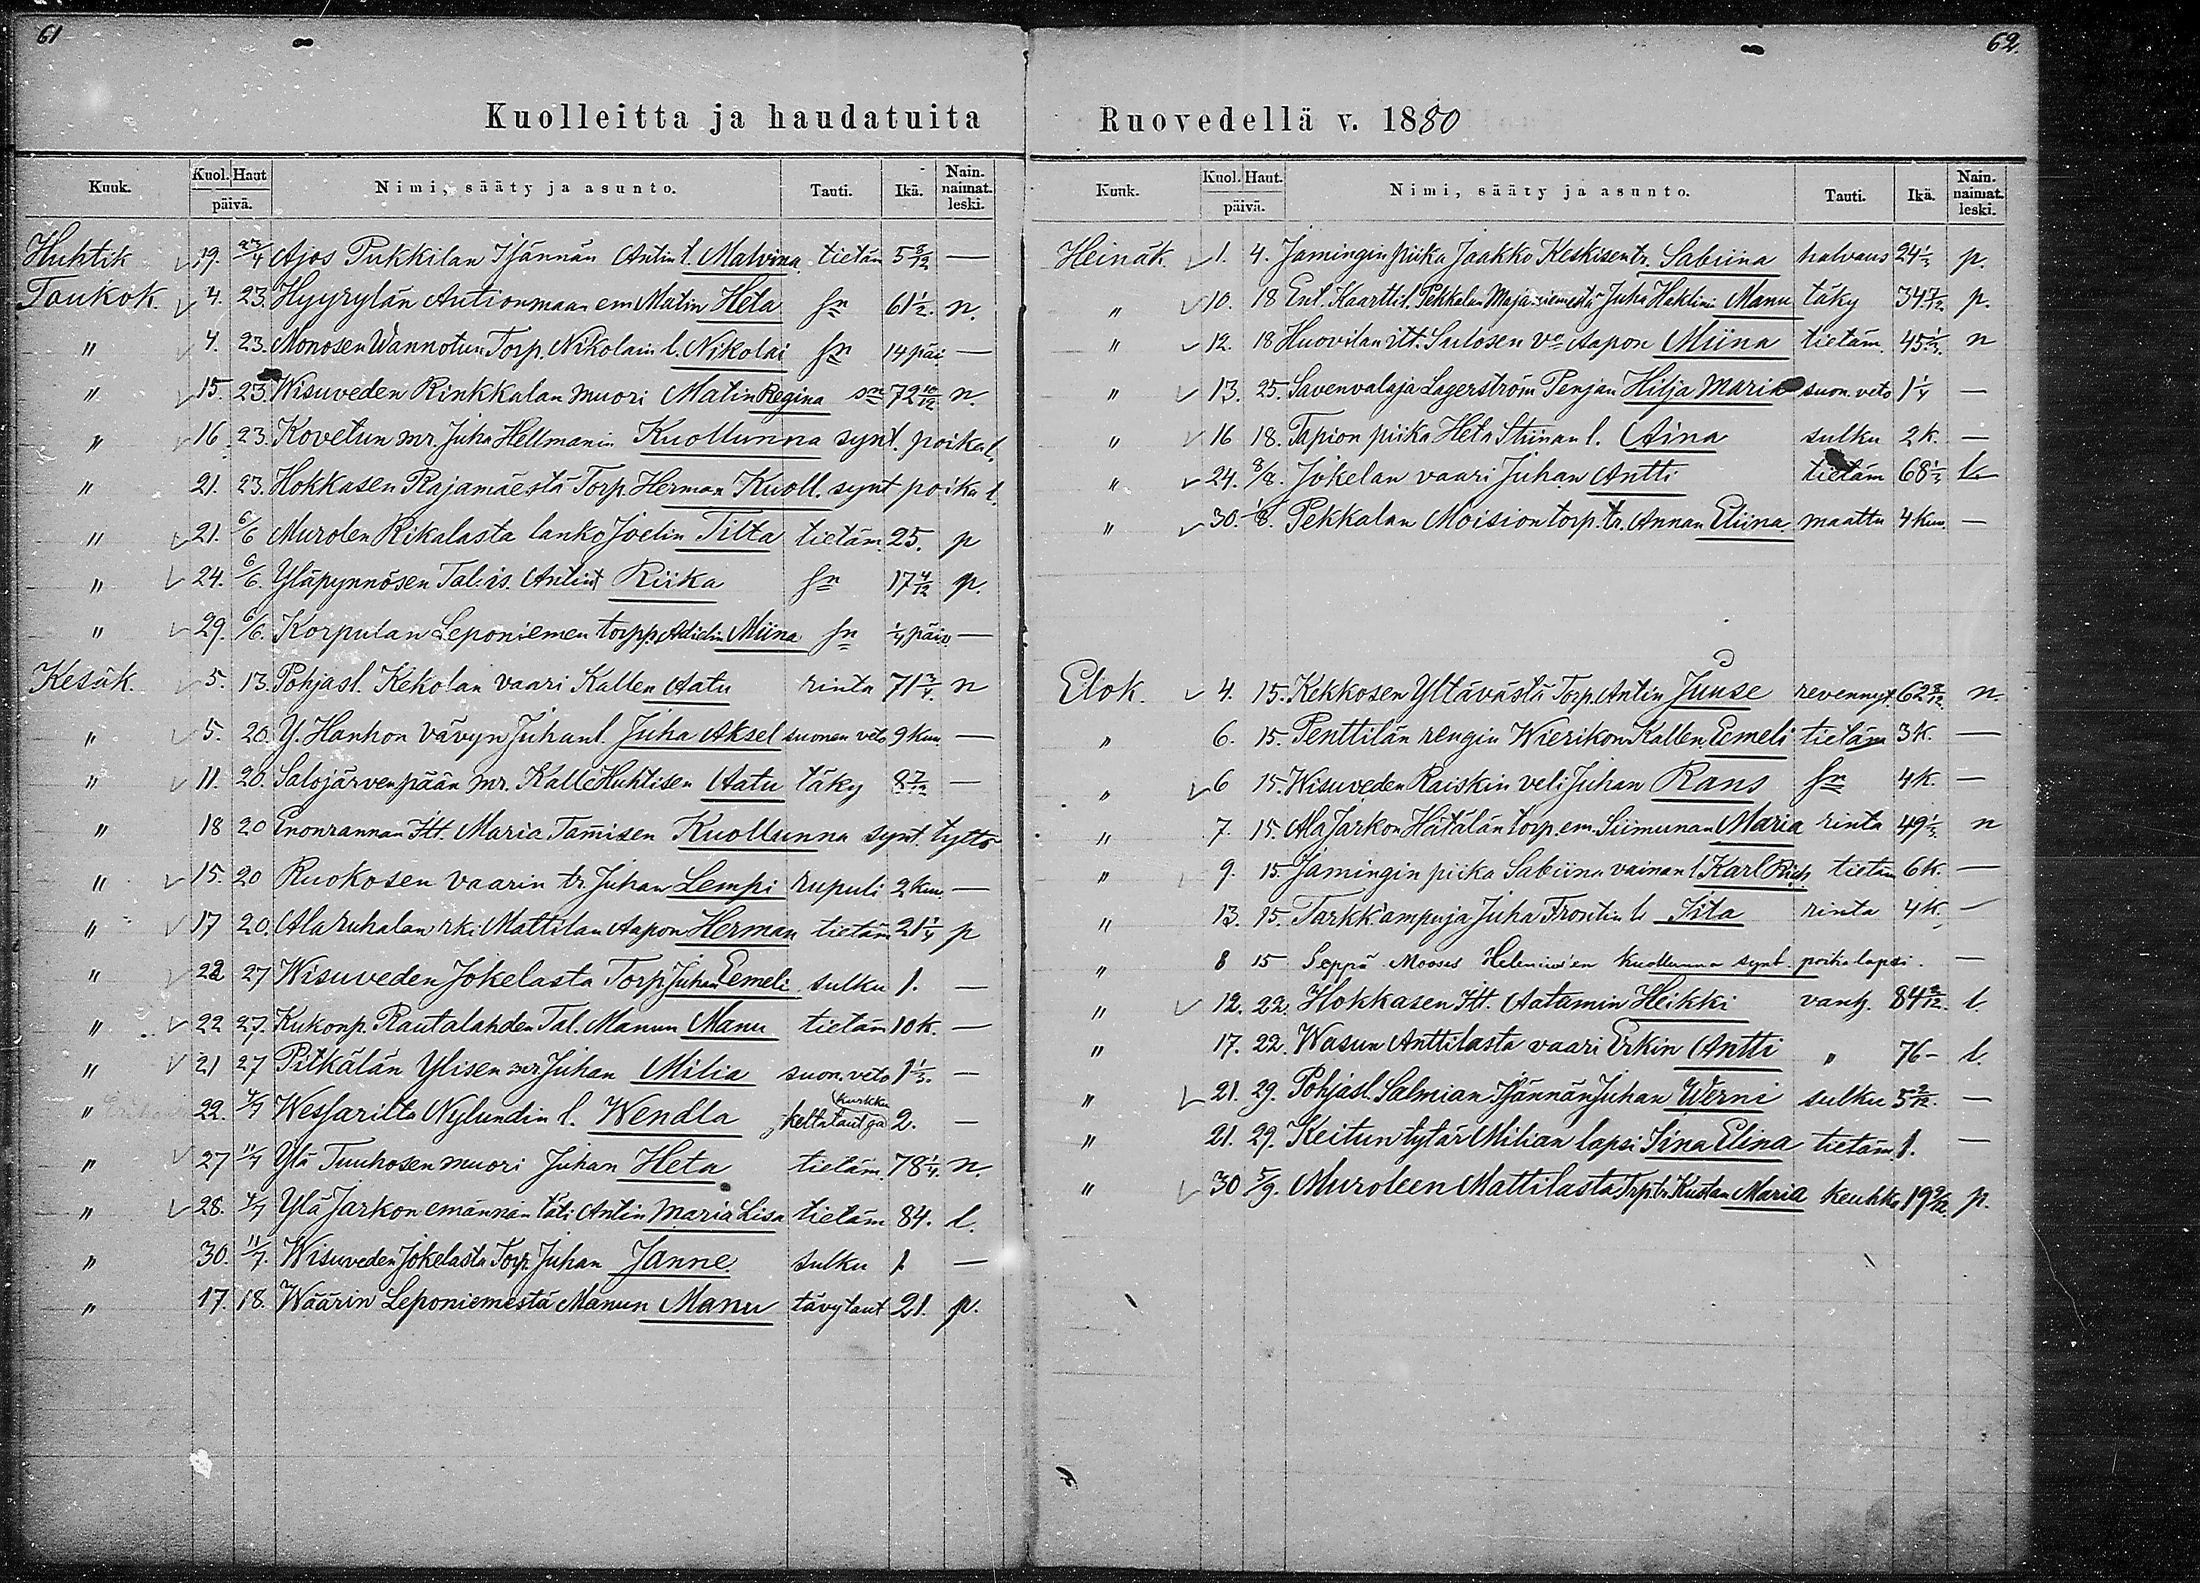 61
Kuolleitta ja haudatuita
Kuuk. Kuol. Haut päivä. Nimi, sääty ja asunto. Tauti. Ikä. Nain. naimat. leski.
Huhtik 19. 23/4 Ajos Pukkilan Isännän Antin l. Malvina tietän 5 8/12 —
Toukok. 4. 23. Hyyrylän Autionmaan em Matin Heta sn 61 1/2. n.
" 4. 23. Monosen Wannotun Torp. Nikolain l. Nikolai sn 14 päi —
" 15. 23. Wisuveden Rinkkalan muori Matin Regina sn 72 10/12 n.
" 16. 23. Kovetun mr. Juha Hellmanin Kuollunna synt. poika l.
" 21. 23. Hokkasen Rajamäestä Torp. Herman Kuoll. synt poika l
" 21. 6/6 Murolen Rikalasta lanko Joelin Tilta tietäm. 25. p
" 24. 6/6. Yläpynnösen Tal. is. Antint Riika sn 17 4/12 p.
" 29. 6/6. Korpulan Leponiemen torpp. Adielin Miina sn 1/4 päiv —
Kesäk. 5. 13. Pohjasl. Kekolan vaari Kallen Aatu rinta 71 3/4. n
" 5. 20. Y. Hanhon vävyn Juhan l. Juha Aksel suonen veto 9 kuu —
" 11. 20. Salojärvenpään mr. Kalle Huhtisen Aatu täky 8 7/12 —
" 18 20 Enonrannan Itt. Maria Tamisen Kuollunna synt. tyttö
" 15. 20 Ruokosen vaarin tr. Juhan Lempi rupuli 2 kuu. —
" 17 20. Ala ruhalan rki Mattilan Aapon Herman tietäm 21 1/4 p
" 22 27 Wisuveden Jokelasta Torp Juhan Eemeli sulku 1. —
" 22 27. Kukonp. Rautalahden Tal. Manun Manu tietäm 10 k. —
" 21 27 Pitkälän Ylisen mr Juhan Milia suon. veto 1 1/3. —
" 22. 4/7 Wessarilta Nylundin l. Wendla keltataut ja kurkku 2. —
" 27 11/7 Ylä Tuuhosen muori Juhan Heta tietäm. 78 1/4. n.
" 28. 4/7 Ylä Jarkon emännän täti Antin Maria Lisa tietäm 84. l.
" 30. 11/7. Wisuveden Jokelasta Torp. Juhan Janne sulku 1 —
" 17. 18. Wäärin Leponiemestä Manun Manu tävytaut 21. p.
62.
Ruovedellä v. 1880
Kuuk. Kuol. Haut. päivä. Nimi, sääty ja asunto. Tauti. Ikä. Nain. naimat. leski.
Heinäk. 1. 4. Jamingin piika Jaakko Keskisen tr. Sabiina halvaus 24 1/3 p.
" 10. 18 Ent. Kaarttil. Pekkalan Majaniemestä Juha Haklinin Manu täky 34 7/12. p.
" 12. 18 Huovilan itt. Sulosen vo Aapon Miina tietäm. 45 1/3. n
" 13. 25. Savenvalaja Lagerström Penjan Hilja Maria suon. veto 1 1/4 —
" 16 18. Tapion piika Heta Stiinan l. Aina sulku 2 k. —
" 24. 8/8. Jokelan vaari Juhan Antti tietäm 68 1/2 l.
" 30. 1/8. Pekkalan Moision torp. tr. Annan Eliina maattu 4 kuu. —
Elok. 4. 15. Kekkosen Yltävästä Torp. Antin Juuse revennyt. 62 8/12. n.
" 6. 15. Penttilän rengin Wierikon Kallen Eemeli tietäm 3 k. —
" 6 15. Wisuveden Raiskin veli Juhan Rans sn 4 k. —
" 7. 15. Ala Jarkon Hätälän torp. em. Siimunan Maria rinta 49 1/3 n
" 9. 15. Jamingin piika Sabiina vainan l Karl Rich. tietäm 6 k. —
" 13. 15. Tarkk'ampuja Juha Frontin l. Iita rinta 4 k. —
" 8 15 Seppä Mooses Helenius'en kuollunna synt. poika lapsi. —
" 12. 22. Hokkasen Itt. Aatamin Heikki vanh. 84 2/12. l.
" 17. 22. Wasun Anttilasta vaari Erkin Antti " 76 — l.
" 21. 29. Pohjasl. Salmian Isännän Juhan Werni sulku 5 2/12. —
" 21. 29. Keitun tytär Milian lapsi Iina Elina tietäm. 1. —
" 30 5/9. Muroleen Mattilasta Trp tr. Kustan Maria keuhko 19 9/12. p.